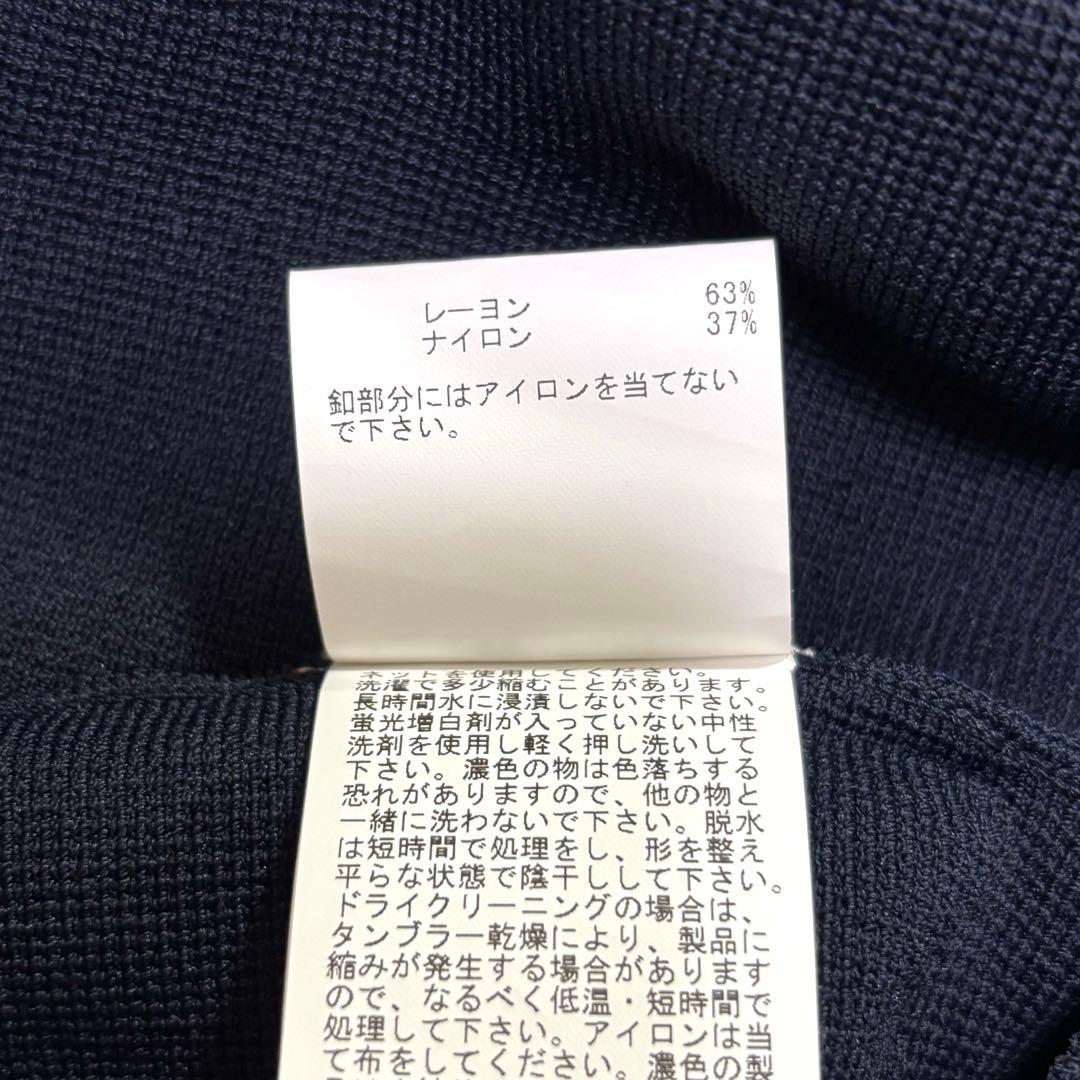 レーヨン 63%
ナイロン 37%
釦部分にはアイロンを当てない
で下さい。
ネットを使用してください。
洗濯で多少縮むことがあります。
長時間水に浸漬しないで下さい。
蛍光増白剤が入っていない中性
洗剤を使用し軽く押し洗いして
下さい。濃色の物は色落ちする
恐れがありますので、他の物と
一緒に洗わないで下さい。脱水
は短時間で処理をし、形を整え
平らな状態で陰干しして下さい。
ドライクリーニングの場合は、
タンブラー乾燥により、製品に
縮みが発生する場合があります
ので、なるべく低温・短時間で
処理して下さい。アイロンは当
て布をしてください。濃色の製